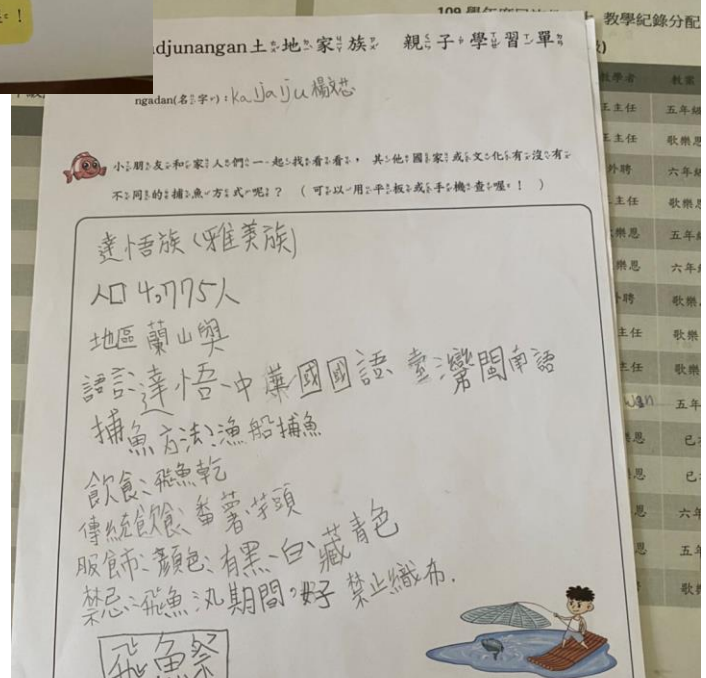 ！
109 學年度
教學紀錄分配
djunangan土地家族 親子學習單
ngadan(名字)：kaljalju 楊文芯
小朋友和家人們一起找看看，其他國家或文化有沒有
不同的捕魚方式呢？（可以用平板或手機查喔！）
達悟族(雅美族)
人口4,775人
地區蘭山與
語言：達悟、中華國國語、臺灣閩南語
捕魚方法：漁船捕魚
飲食：飛魚乾
傳統飲食：番薯、芋頭
服飾：顏色：有黑、白、藏青色
禁忌：飛魚汛期間，好禁止織布.
飛魚祭
教學者 教案
王主任 五年級
王主任 歌樂恩
外聘 六年級
主任 歌樂
樂恩 五年
樂恩 六年
聘 歌樂
主任 歌樂
主任 歌樂
wan 五年
恩 已
恩 已
恩 六年
恩 五年
歌